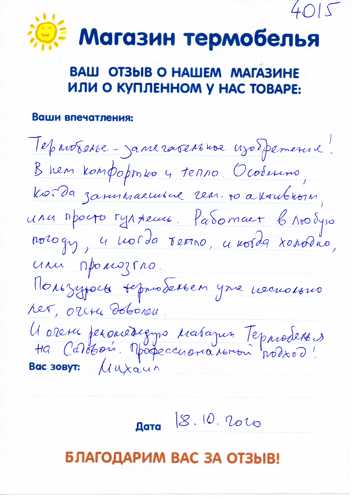 4015
Магазин термобелья
ВАШ ОТЗЫВ О НАШЕМ МАГАЗИНЕ
ИЛИ О КУПЛЕННОМ У НАС ТОВАРЕ:
Ваши впечатления:
Термобелье - замечательное изобретение!
В нем комфортно и тепло. Особенно,
когда занимаешься чем-то активным,
или просто гуляешь. Работает в любую
погоду, и когда тепло, и когда холодно,
или промозгло.
Пользуюсь термобельем уже несколько
лет, очень доволен.
И очень рекомендую магазин Термобелья
на Садовой. Профессиональный подход!
Вас зовут: Михаил
Дата 18.10.2020
БЛАГОДАРИМ ВАС ЗА ОТЗЫВ!